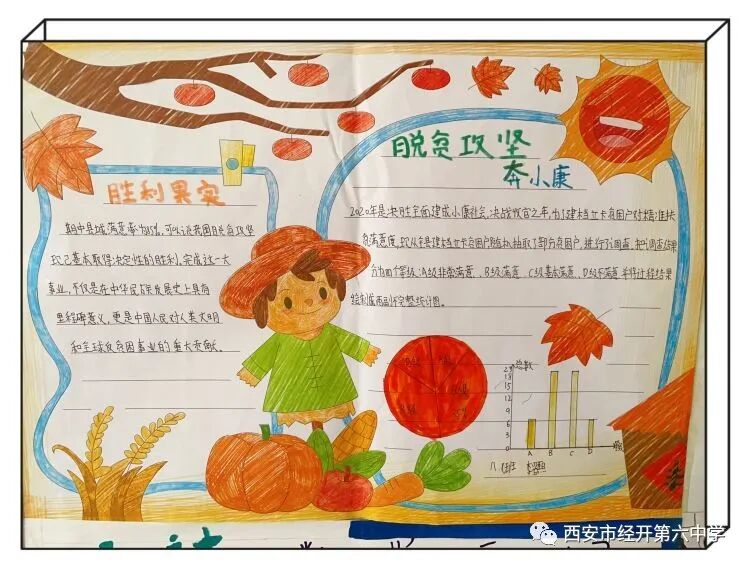 脱贫攻坚
奔小康
胜利果实
2020年是决胜全面建成小康社会、决战脱贫攻坚之年,为了建档立卡贫困户对精准扶
贫满意度,现从全县建档立卡贫困户随机抽取了部分贫困户,进行了调查,把调查结果
分为四个等级:A级非常满意、B级满意、C级基本满意、D级不满意
绘制成两副不完整统计图。
可以说我国脱贫攻坚
已基本取得决定性的胜利,完成这一大
事业,不仅是在中华民族发展史上具有
里程碑意义,更是中国人民对人类文明
和全球反贫困事业的重大贡献。
总数
21
18
15
12
9
6
3
0
A B C D
西安市经开第六中学